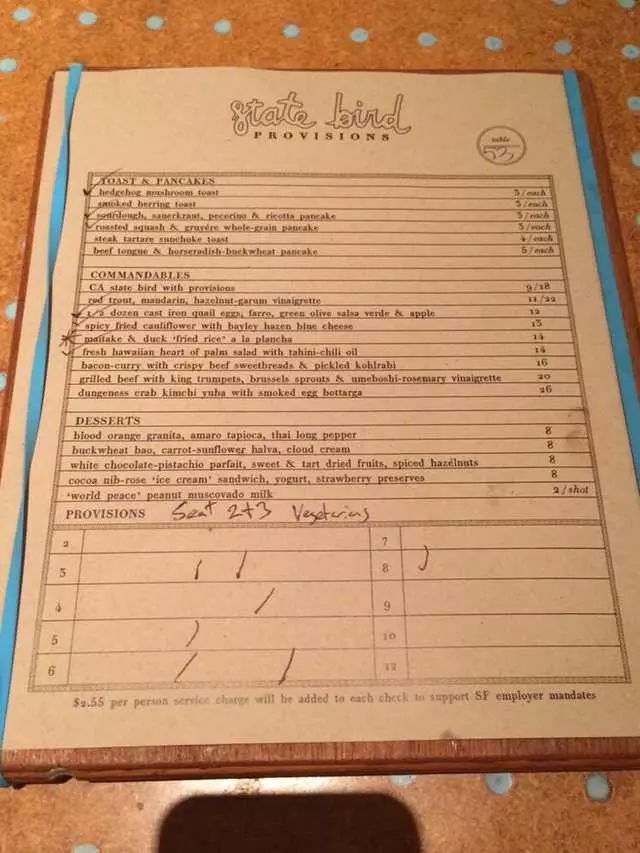 state bird
PROVISIONS
table
53
TOAST & PANCAKES
hedgehog mushroom toast 3/each
smoked herring toast 3/each
sourdough, sauerkraut, pecorino & ricotta pancake 3/each
roasted squash & gruyère whole-grain pancake 3/each
steak tartare sunchoke toast 4/each
beef tongue & horseradish-buckwheat pancake 5/each
COMMANDABLES
CA state bird with provisions 9/18
red trout, mandarin, hazelnut-garum vinaigrette 11/22
1/2 dozen cast iron quail eggs, farro, green olive salsa verde & apple 12
spicy fried cauliflower with bayley hazen blue cheese 13
maitake & duck 'fried rice' a la plancha 14
fresh hawaiian heart of palm salad with tahini-chili oil 14
bacon-curry with crispy beef sweetbreads & pickled kohlrabi 16
grilled beef with king trumpets, brussels sprouts & umeboshi-rosemary vinaigrette 20
dungeness crab kimchi yuba with smoked egg bottarga 26
DESSERTS
blood orange granita, amaro tapioca, thai long pepper 8
buckwheat bao, carrot-sunflower halva, cloud cream 8
white chocolate-pistachio parfait, sweet & tart dried fruits, spiced hazelnuts 8
cocoa nib-rose 'ice cream' sandwich, yogurt, strawberry preserves 8
'world peace' peanut muscovado milk 2/shot
PROVISIONS Seat 2+3 Vegetarians
2 7
3 8
4 9
5 10
6 12
$2.55 per person service charge will be added to each check to support SF employer mandates